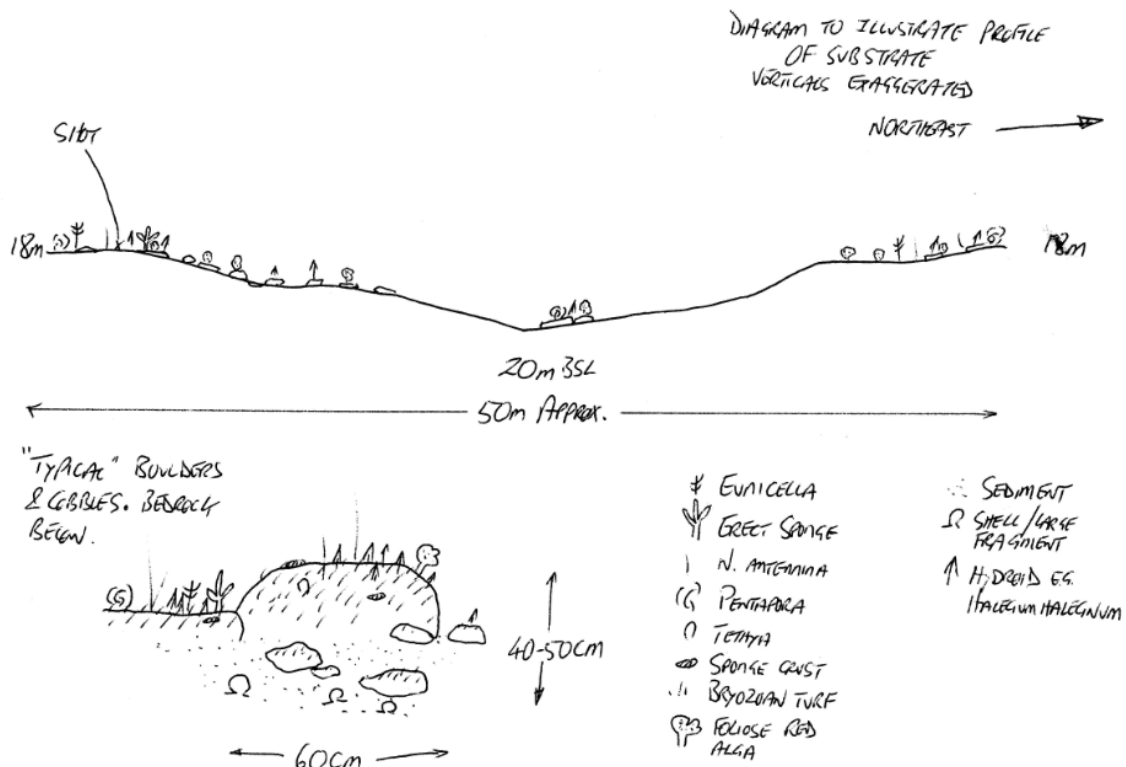 DIAGRAM TO ILLUSTRATE PROFILE
OF SUBSTRATE
VERTICALS EXAGGERATED
NORTHEAST
18m
18m
20m BSL
50m APPROX.
"TYPICAL" BOULDERS
& COBBLES. BEDROCK
BELOW.
40-50cm
60cm
EUNICELLA
ERECT SPONGE
N. ANTENNINA
PENTAPORA
TETHYA
SPONGE CRUST
BRYOZOAN TURF
FOLIOSE RED
ALGA
SEDIMENT
SHELL/LARGE
FRAGMENT
HYDROID EG.
HALECIUM HALECINUM